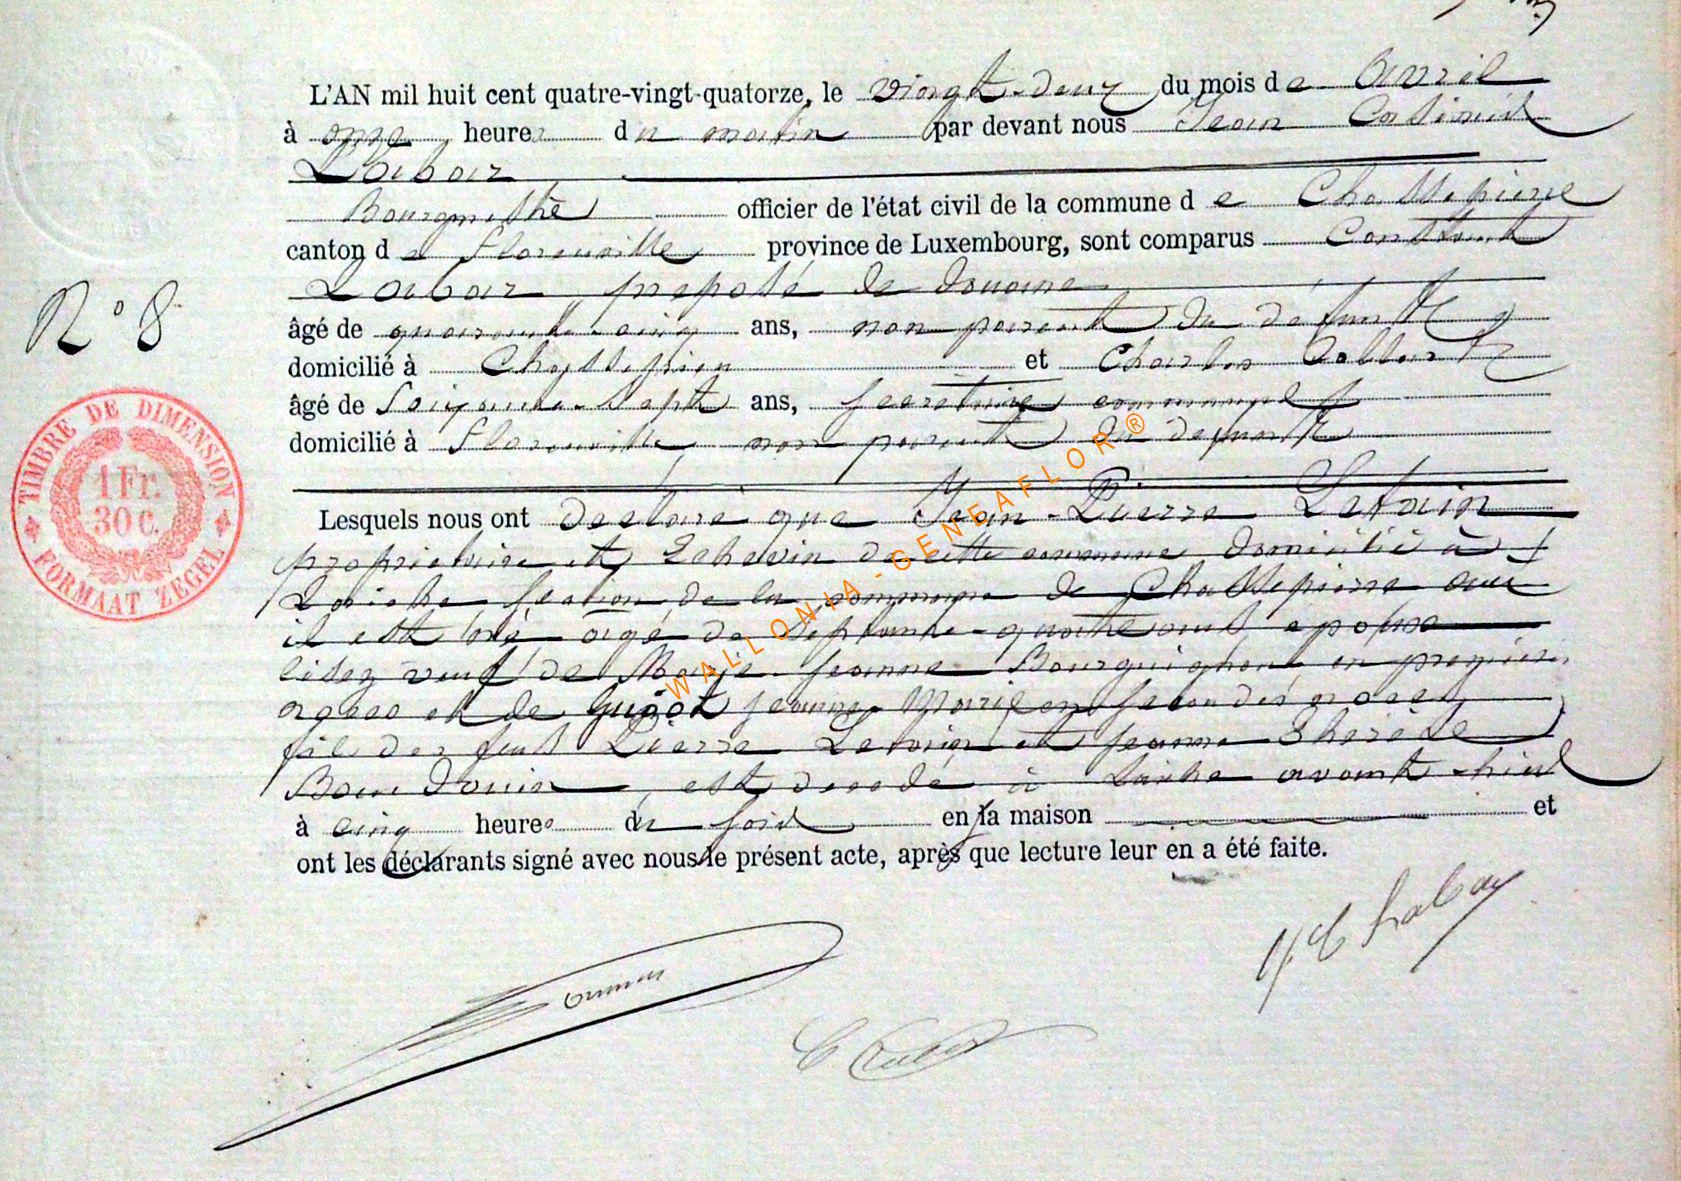 L'AN mil huit cent quatre-vingt-quatorze, le vingt-deux du mois de Avril
à onze heures du matin par devant nous Jean Casimir
Labaix
Bourgmestre officier de l'état civil de la commune de Chassepierre
canton de Florenville province de Luxembourg, sont comparus Constant
préposé de douane
N° 8
âgé de quarante-cinq ans, non parent du défunt
domicilié à Chassepierre et Charles
âgé de soixante-sept ans, secrétaire communal
domicilié à Florenville non parent du défunt
Lesquels nous ont déclaré que Jean-Pierre
propriétaire et Echevin de cette commune domicilié à
section de la commune de Chassepierre où
il est né âgé de septante-quatre ans, époux
lisez veuf de Marie-Jeanne Bourguignon en premières
noces et de Guiot Jeanne-Marie en secondes noces
fils des feus Pierre et Jeanne Thérèse
est décédé à avant-hier
à cinq heures du soir en sa maison et
ont les déclarants signé avec nous le présent acte, après que lecture leur en a été faite.
TIMBRE DE DIMENSION
1 Fr.
30 C.
FORMAAT ZEGEL
WALLONIA-GENEAFLOR®